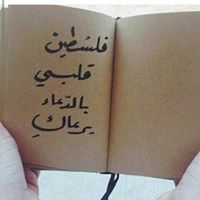 فلسطين
قلبي
بالدعاء
يرعاكِ